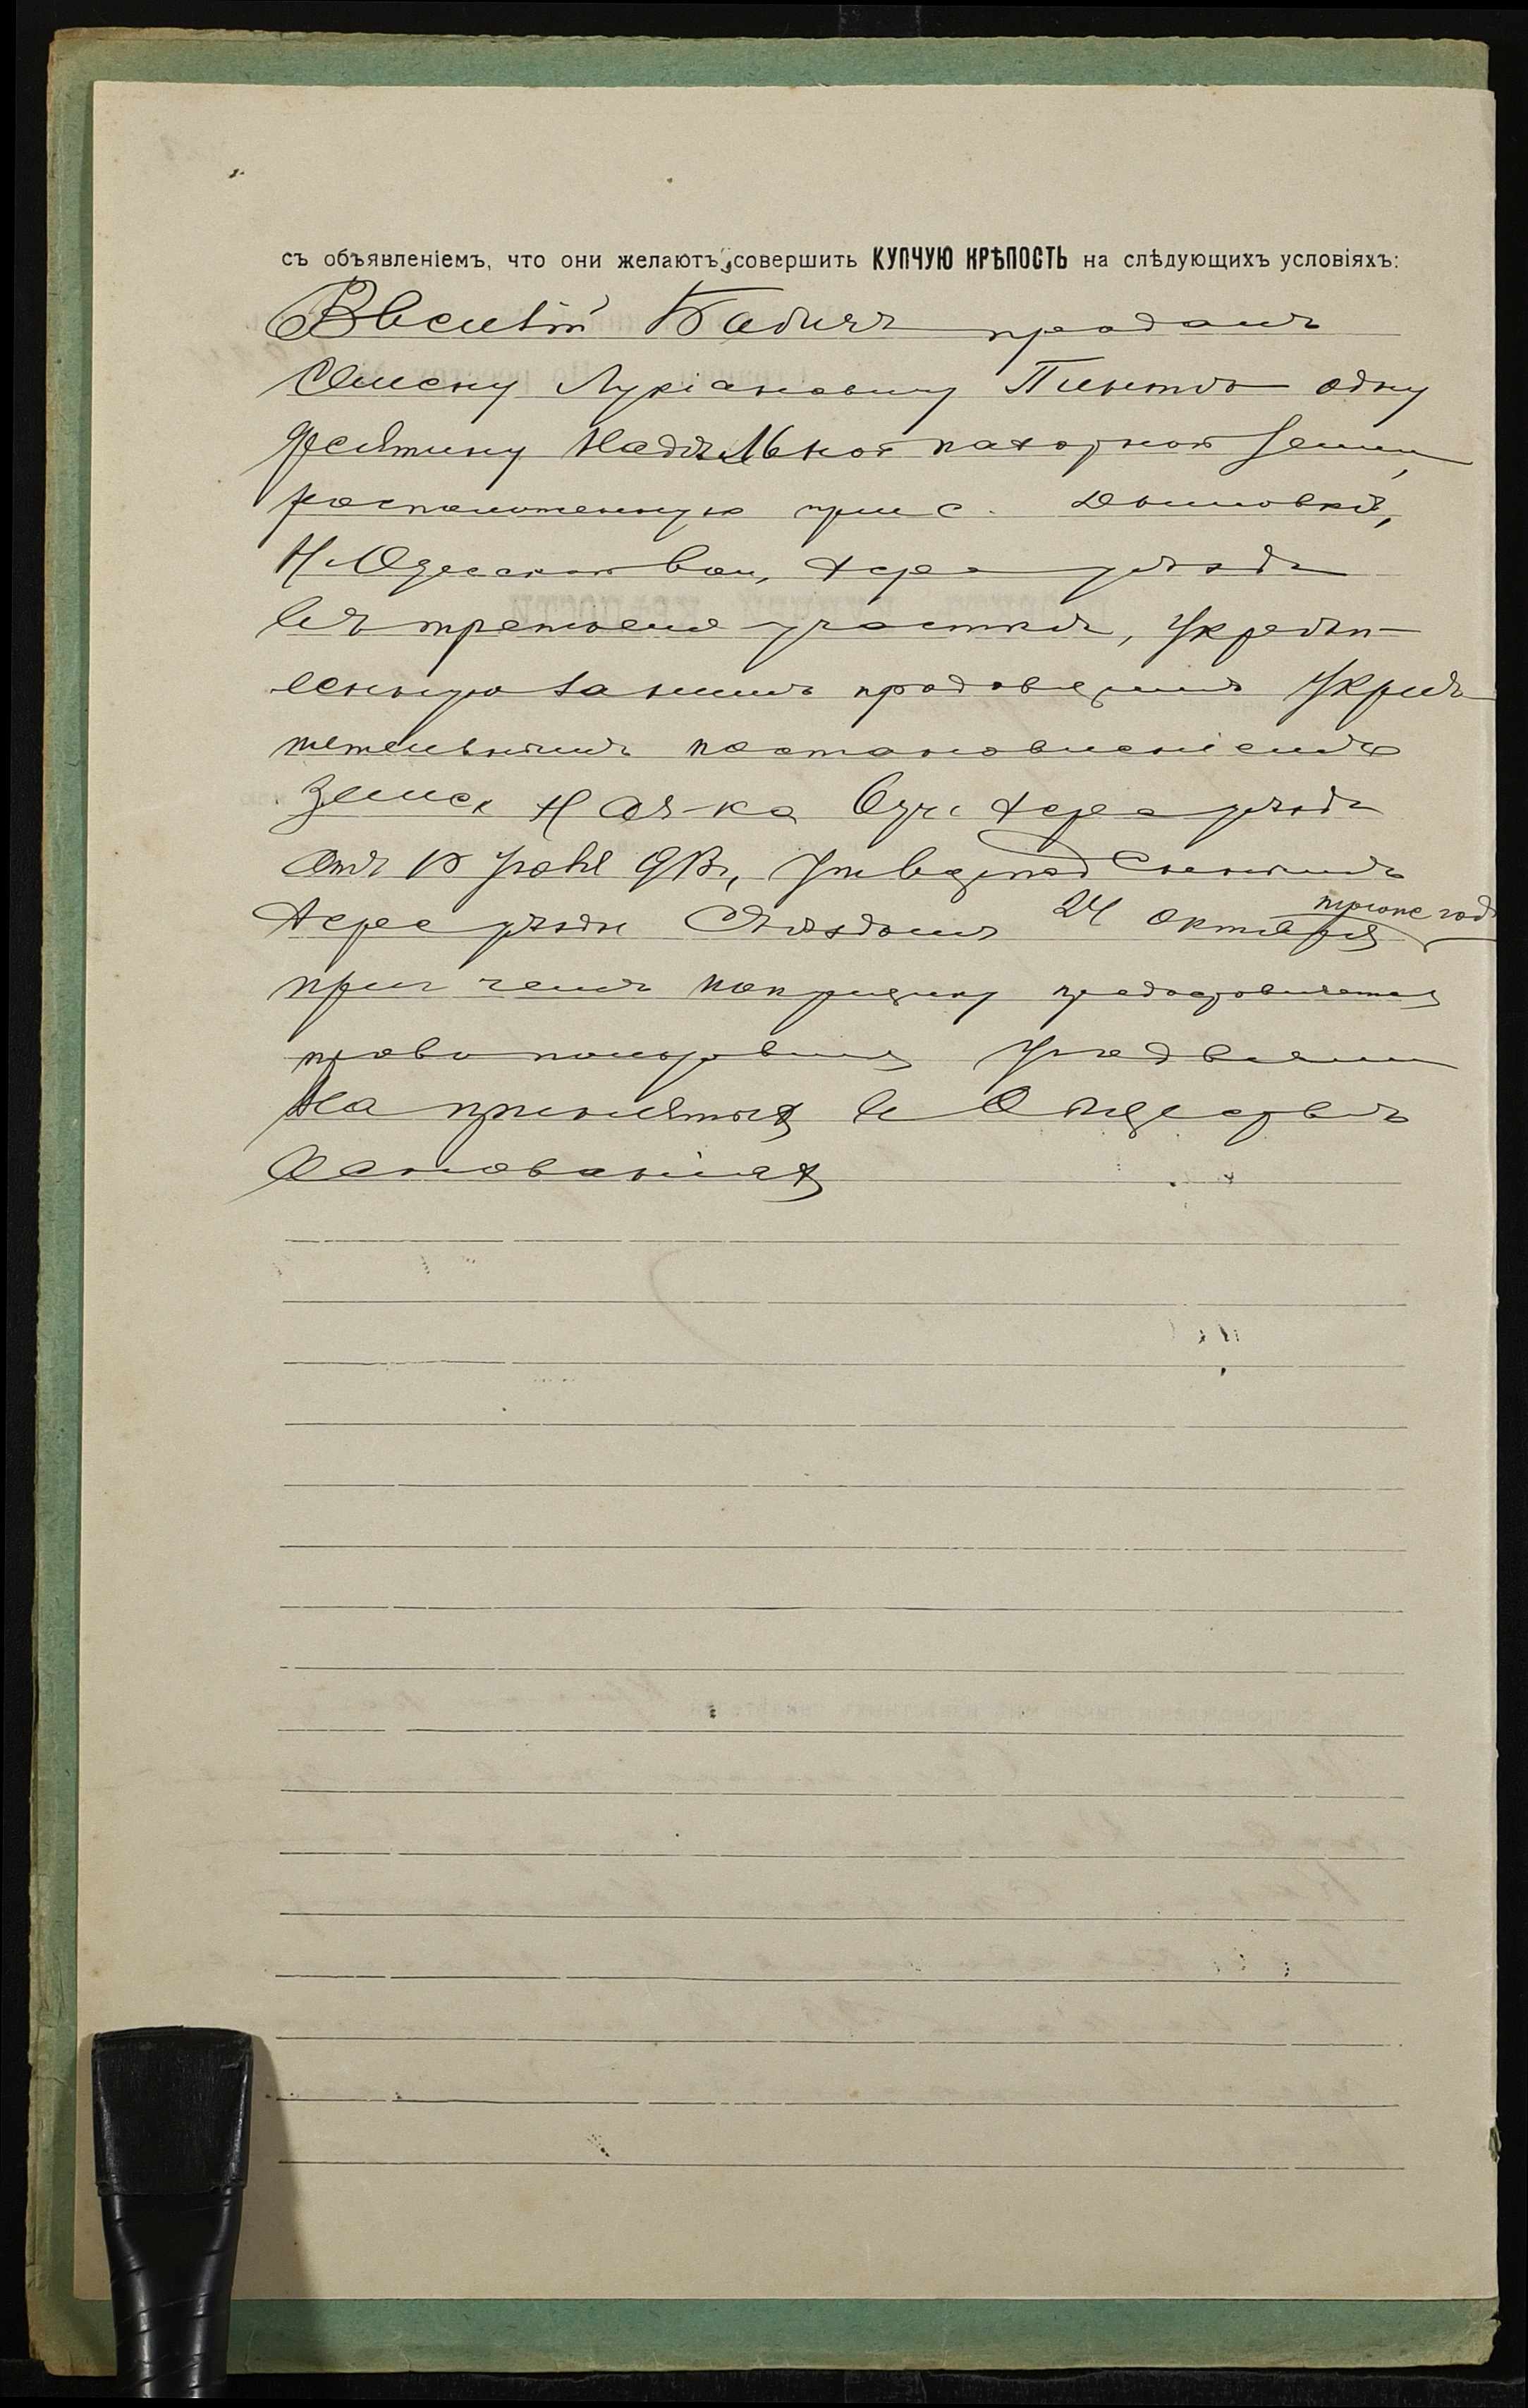 съ объявленіемъ, что они желаютъ совершить КУПЧУЮ КРѢПОСТЬ на слѣдующихъ условіяхъ:
Бабичъ продалъ
Семену Лукіановичу одну
десятину надѣльной пахотной земли,
расположенную при с.
Н. Одесской вол, Херс уѣзда
въ третьемъ участкѣ, укрѣп-
ленную за нимъ продавцемъ Укрѣ-
постановленіемъ
Земск Нач-ка 6 уч. Херс уѣзда
отъ
Херс уѣздн Съѣздомъ 24 октября того же года
при чемъ покупщику предоставляется
право пользованія угодьями
на принятыхъ въ Обществѣ
основаніяхъ